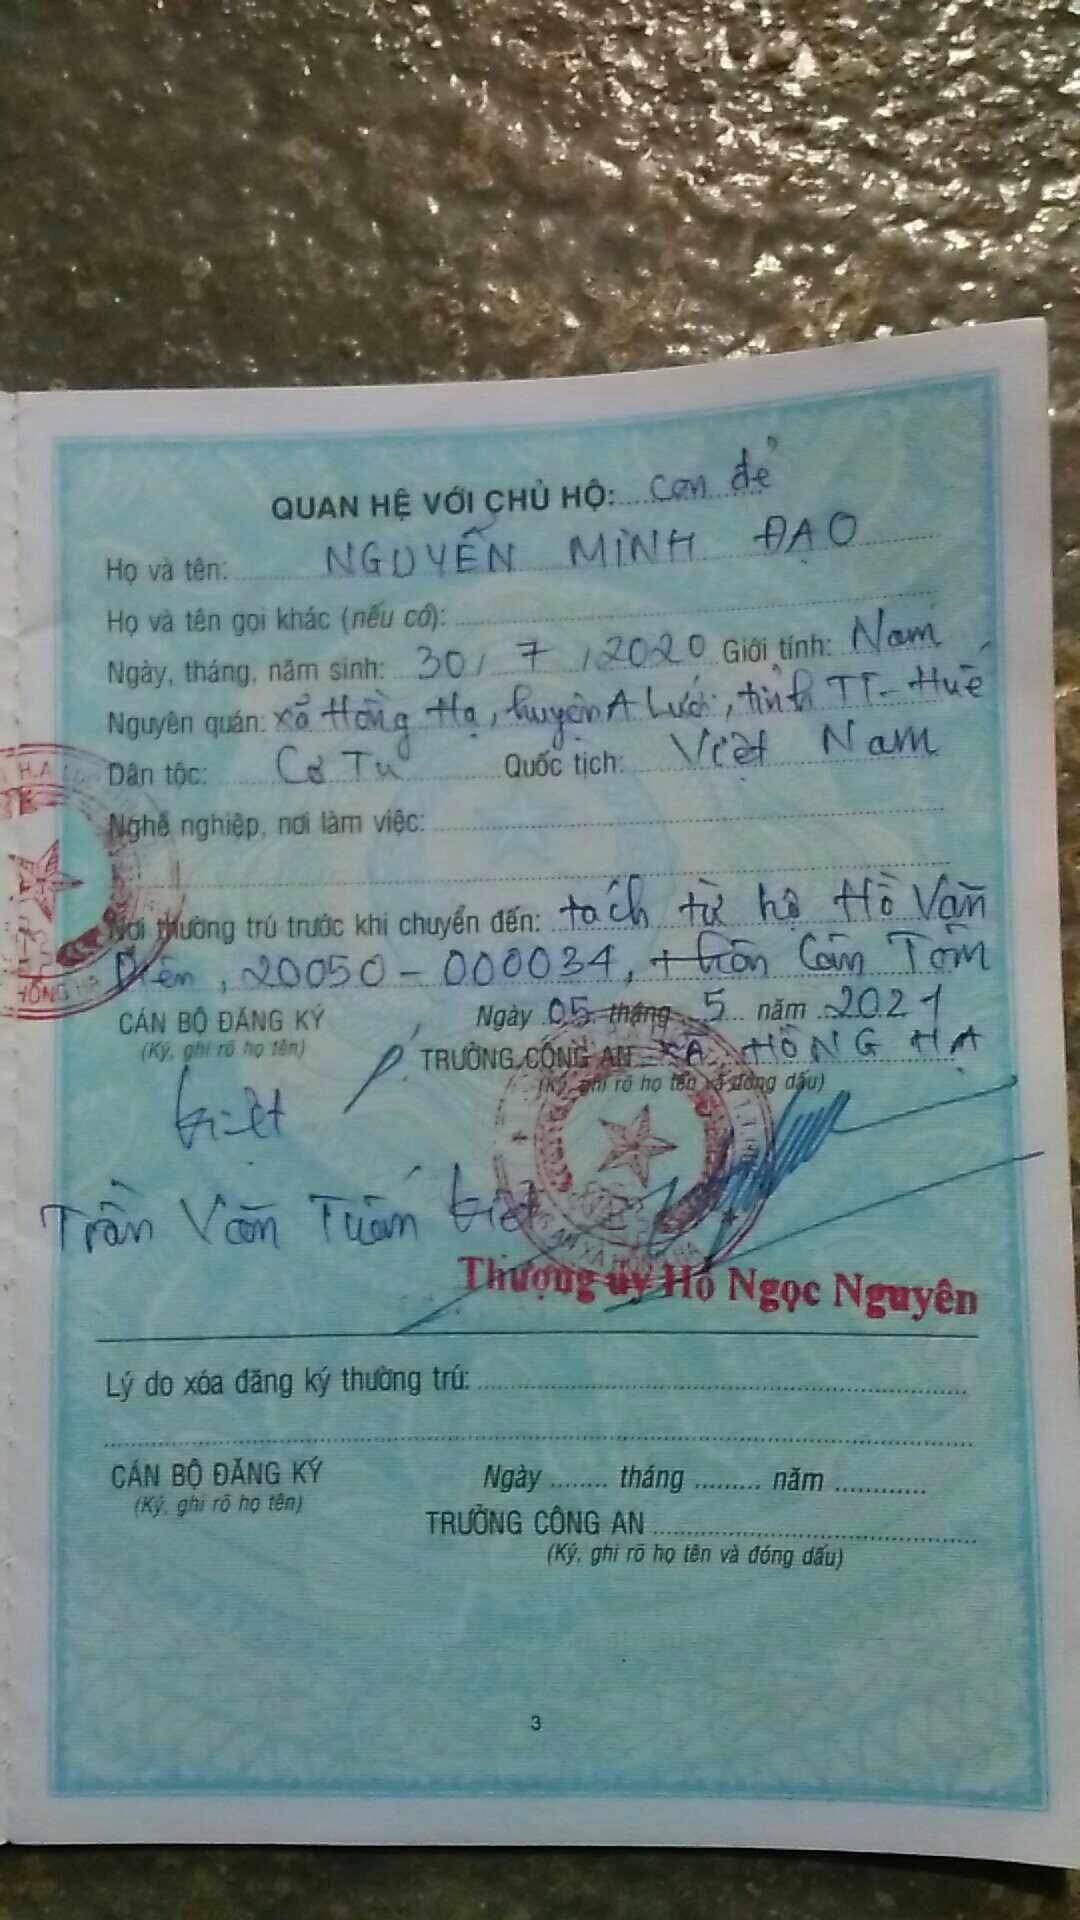 QUAN HỆ VỚI CHỦ HỘ: con đẻ
Họ và tên: NGUYỄN MINH ĐẠO
Họ và tên gọi khác (nếu có):
Ngày, tháng, năm sinh: 30 / 7 / 2020 Giới tính: Nam
Nguyên quán: xã Hồng Hạ, huyện A Lưới, tỉnh TT-Huế
Dân tộc: Cơ Tu Quốc tịch: Việt Nam
Nghề nghiệp, nơi làm việc:
Nơi thường trú trước khi chuyển đến: tách từ hộ Hồ Văn
20050-000034, thôn Cân Tôm
CÁN BỘ ĐĂNG KÝ Ngày 05 tháng 5 năm 2021
(Ký, ghi rõ họ tên) TRƯỞNG CÔNG AN XÃ HỒNG HẠ
(Ký, ghi rõ họ tên và đóng dấu)
Kiệt
Trần Văn Tuấn Kiệt
Thượng úy Hồ Ngọc Nguyên
Lý do xóa đăng ký thường trú:
CÁN BỘ ĐĂNG KÝ Ngày ........ tháng ......... năm ............
(Ký, ghi rõ họ tên) TRƯỞNG CÔNG AN
(Ký, ghi rõ họ tên và đóng dấu)
3